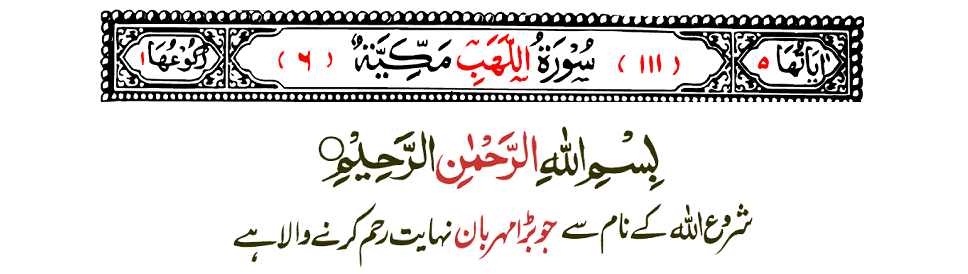 اٰیَاتُهَا ۵ (۱۱۱) سُوْرَةُ اللَّهَبِ مَكِّيَّةٌ (۶) رُكُوْعُهَا ۱
بِسْمِ اللهِ الرَّحْمٰنِ الرَّحِيْمِ۝
شروع اللہ کے نام سے جو بڑا مہربان نہایت رحم کرنے والا ہے